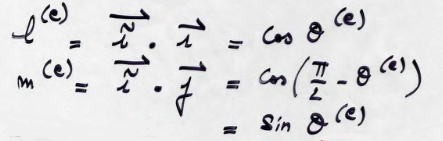 l^(e) = \vec{\tilde{i}} . \vec{i} = Cos θ^(e)
m^(e) = \vec{\tilde{i}} . \vec{j} = Cos(π/2 - θ^(e))
= Sin θ^(e)